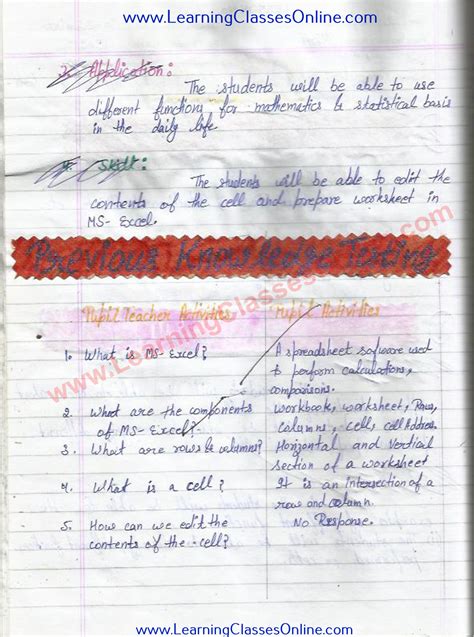 www.LearningClassesOnline.com
3. Application:
The students will be able to use
different functions for mathematics & statistical basis
in the daily life.
4. Skill:
The students will be able to edit the
contents of the cell and prepare worksheet in
MS-Excel.
Previous Knowledge Testing
Pupil Teacher Activities
Pupil Activities
1. What is MS-Excel?
A spreadsheet sofware used
to perform calculations,
comparisons.
2. What are the components
of MS-Excel?
workbook, worksheet, Rows,
columns, cell, cell Address.
3. What are rows & columns?
Horizontal and Vertical
section of a worksheet
4. What is a cell?
It is an intersection of a
row and column.
5. How can we edit the
contents of the cell?
No Response.
www.LearningClassesOnline.com
www.LearningClassesOnline.com